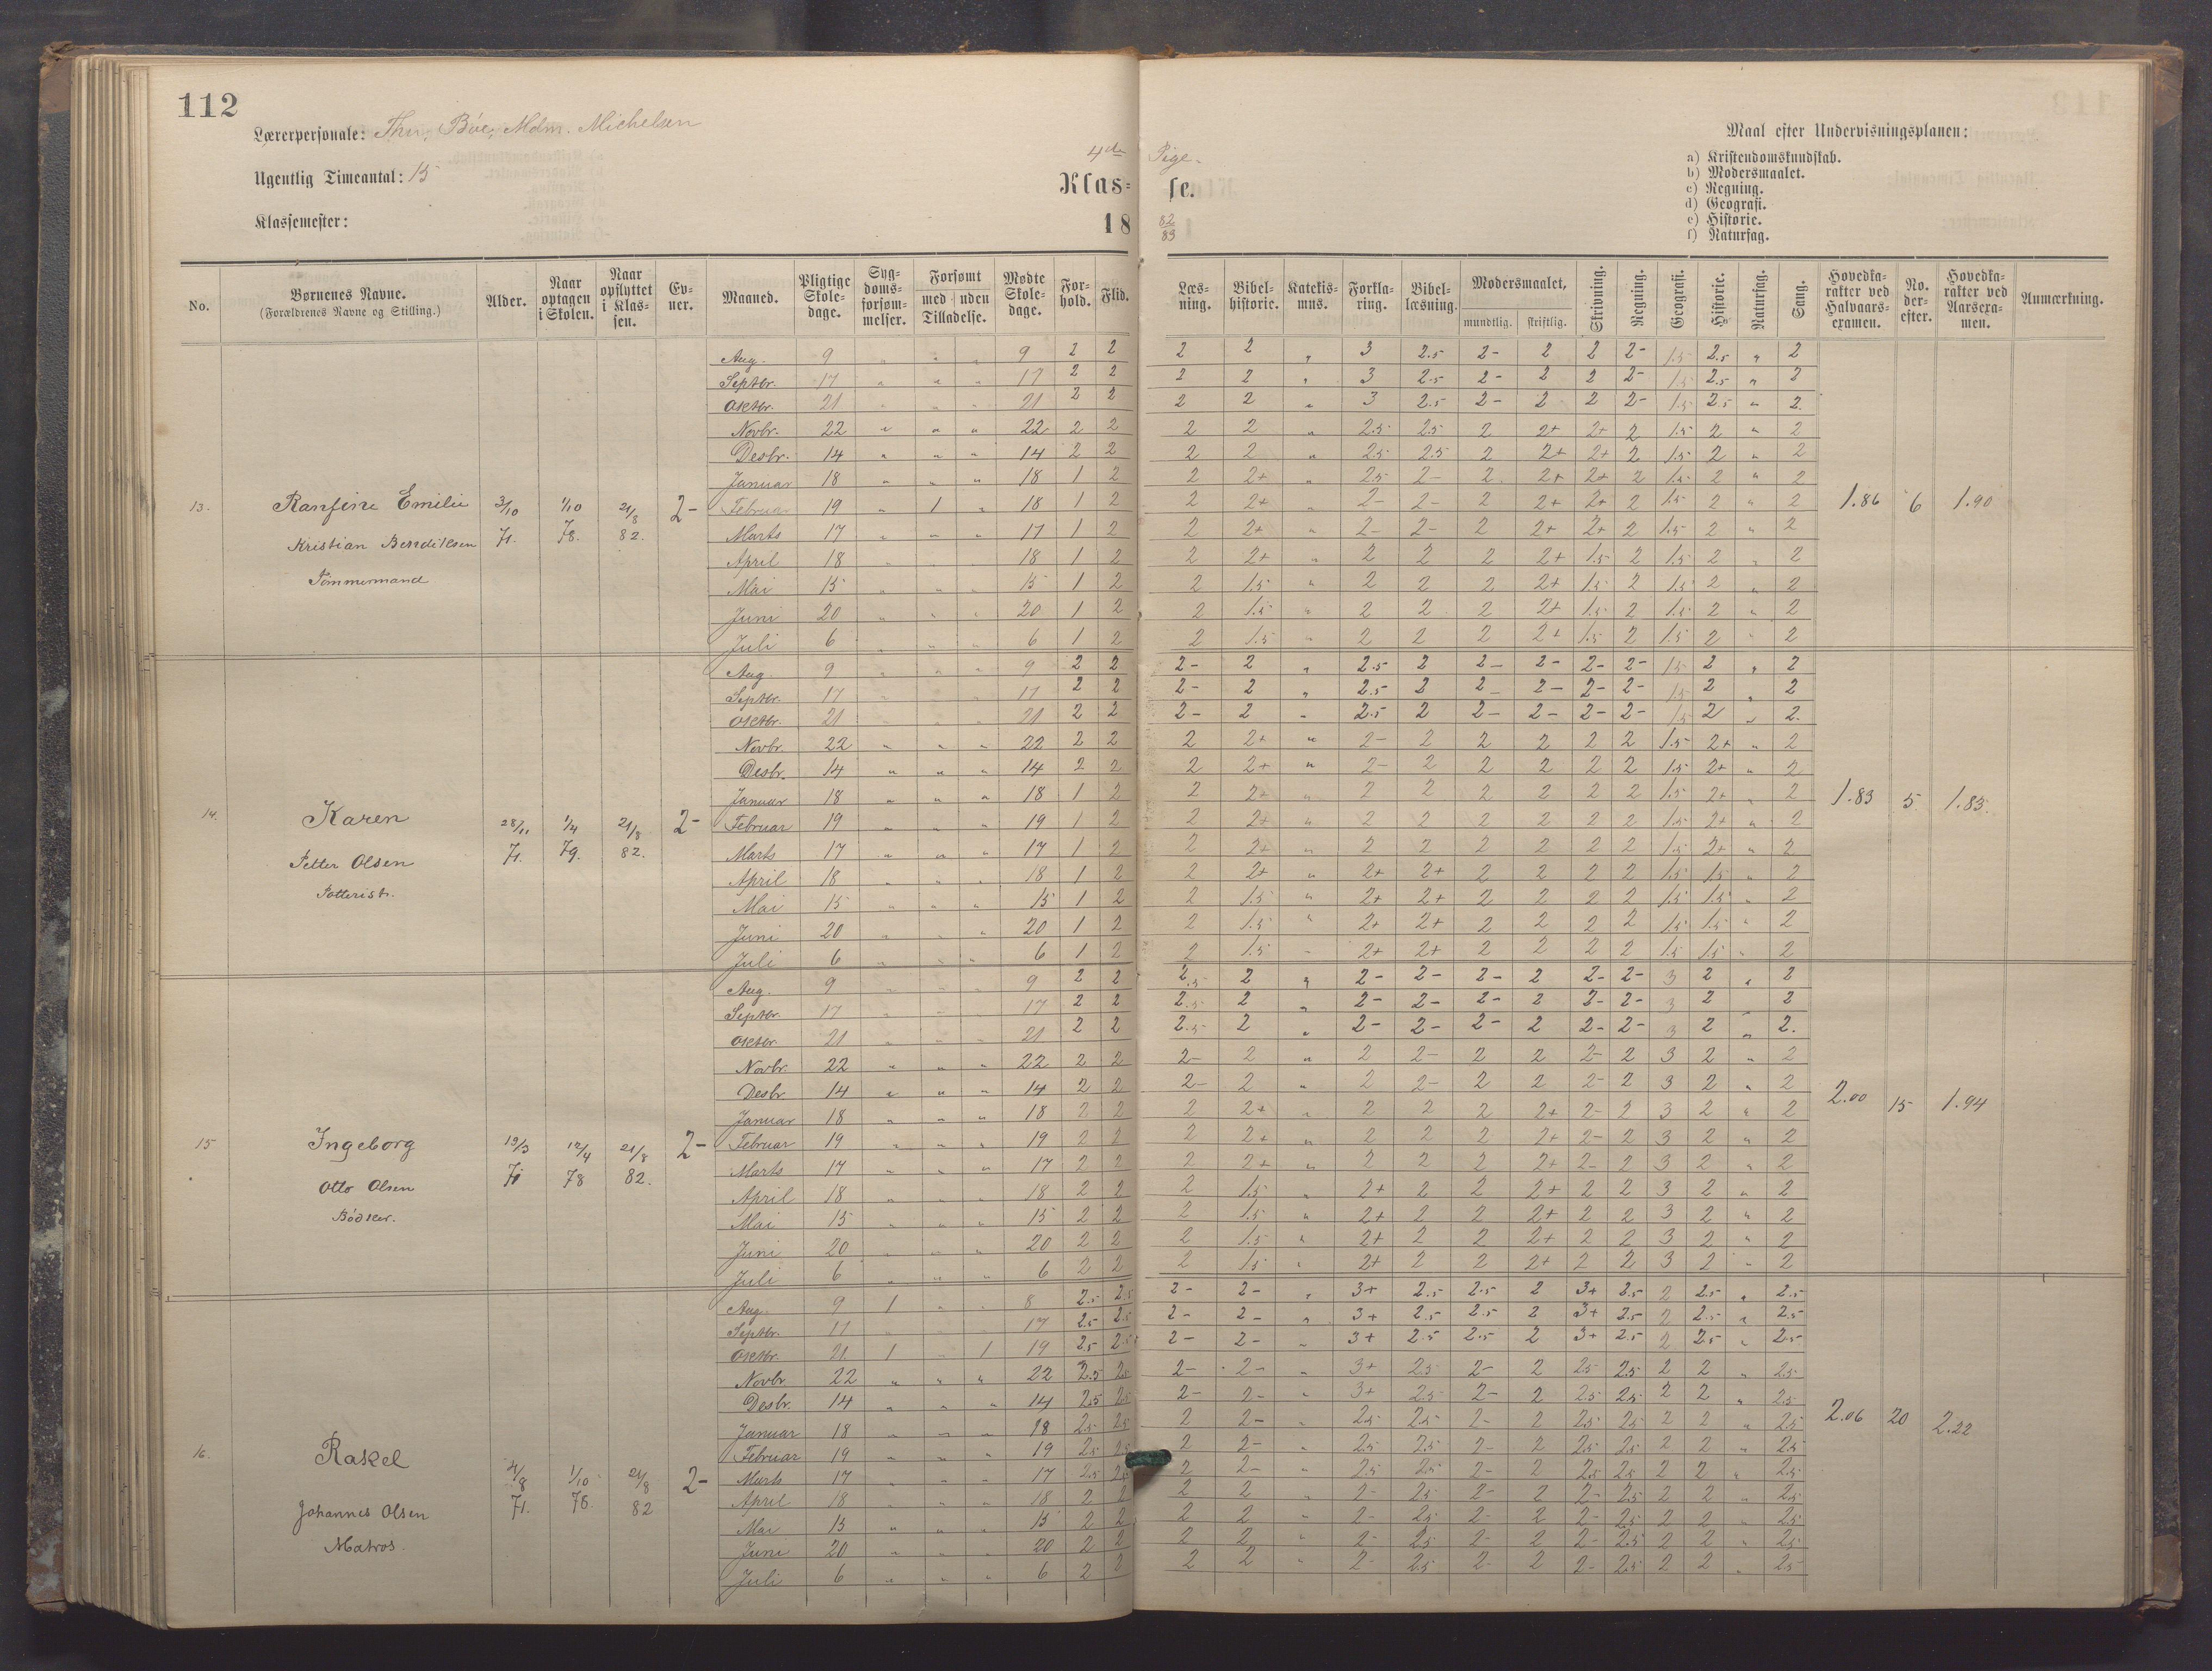 112
Lærerpersonale: Thu, Böe, Mdm. Michelsen
Ugentlig Timeantal: 15
Klassemester:
4de Pige-
Klas- se.
18 82/83
Maal efter Undervisningsplanen:
a) Kristendomskundskab.
b) Modersmaalet.
c) Regning.
d) Geografi.
e) Historie.
f) Naturfag.
No. Børnenes Navne. (Forældrenes Navne og Stilling.) Alder. Naar optagen i Skolen. Naar opflyttet i Klassen. Evner. Maaned. Pligtige Skoledage. Sygdomsforsømmelser. Forsømt med uden Tilladelse. Mødte Skoledage. Forhold. Flid. Læsning. Bibelhistorie. Katekismus. Forklaring. Bibellæsning. Modersmaalet, mundtlig. skriftlig. Skrivning. Regning. Geografi. Historie. Naturfag. Sang. Hovedkarakter ved Halvaarsexamen. No. derefter. Hovedkarakter ved Aarsexamen. Anmærkning.
13. Ranfine Emilie 3/10 71. 1/10 78. 21/8 82. 2- 1.86 6 1.90
Kristian Bendiksen
Tömmermand
Aug. 9 " " " 9 2 2 2 2 " 3 2.5 2- 2 2 2- 1.5 2.5 " 2
Septbr. 17 " " " 17 2 2 2 2 " 3 2.5 2- 2 2 2- 1.5 2.5 " 2
Oktbr. 21 " " " 21 2 2 2 2 " 3 2.5 2- 2 2 2- 1.5 2.5 " 2.
Novbr. 22 " " " 22 2 2 2 2 " 2.5 2.5 2 2+ 2+ 2 1.5 2 " 2
Desbr. 14 " " " 14 2 2 2 2 " 2.5 2.5 2 2+ 2+ 2 1.5 2 " 2
Januar 18 " " " 18 1 2 2 2+ " 2.5 2- 2 2+ 2+ 2 1.5 2 " 2
Februar 19 " 1 " 18 1 2 2 2+ " 2- 2- 2 2+ 2+ 2 1.5 2 " 2
Marts 17 " " " 17 1 2 2 2+ " 2- 2- 2 2+ 2+ 2 1.5 2 " 2
April 18 " " " 18 1 2 2 2+ " 2 2 2 2+ 1.5 2 1.5 2 " 2
Mai 15 " " " 15 1 2 2 1.5 " 2 2 2 2+ 1.5 2 1.5 2 " 2
Juni 20 " " " 20 1 2 2 1.5 " 2 2 2 2+ 1.5 2 1.5 2 " 2
Juli 6 " " " 6 1 2 2 1.5 " 2 2 2 2+ 1.5 2 1.5 2 " 2
14. Karen 28/11 71. 1/4 79. 21/8 82. 2- 1.83 5 1.83.
Petter Olsen
Potterist.
Aug. 9 " " " 9 2 2 2- 2 " 2.5 2 2- 2- 2- 2- 1.5 2 " 2
Septbr. 17 " " " 17 2 2 2- 2 " 2.5 2 2- 2- 2- 2- 1.5 2 " 2
Oktbr. 21 " " " 21 2 2 2- 2 " 2.5 2 2- 2- 2- 2- 1.5 2 " 2.
Novbr. 22 " " " 22 2 2 2 2+ " 2- 2 2 2 2 2 1.5 2+ " 2
Desbr. 14 " " " 14 2 2 2 2+ " 2- 2 2 2 2 2 1.5 2+ " 2
Januar 18 " " " 18 1 2 2 2+ " 2 2 2 2 2 2 1.5 2+ " 2
Februar 19 " " " 19 1 2 2 2+ " 2 2 2 2 2 2 1.5 2+ " 2
Marts 17 " " " 17 1 2 2 2+ " 2 2 2 2 2 2 1.5 2+ " 2
April 18 " " " 18 1 2 2 2+ " 2+ 2+ 2 2 2 2 1.5 1.5 " 2
Mai 15 " " " 15 1 2 2 1.5 " 2+ 2+ 2 2 2 2 1.5 1.5 " 2
Juni 20 " " " 20 1 2 2 1.5 " 2+ 2+ 2 2 2 2 1.5 1.5 " 2
Juli 6 " " " 6 1 2 2 1.5 " 2+ 2+ 2 2 2 2 1.5 1.5 " 2
15 Ingeborg 19/3 71 12/4 78 21/8 82. 2- 2.00 15 1.94
Otto Olsen
Bödker.
Aug. 9 " " " 9 2 2 2.5 2 " 2- 2- 2- 2 2- 2- 3 2 " 2
Septbr. 17 " " " 17 2 2 2.5 2 " 2- 2- 2- 2 2- 2- 3 2 2
Oktbr. 21 " " " 21 2 2 2.5 2 " 2- 2- 2- 2 2- 2- 3 2 " 2.
Novbr. 22 " " " 22 2 2 2- 2 " 2 2- 2 2 2- 2 3 2 " 2
Desbr. 14 " " " 14 2 2 2- 2 " 2 2- 2 2 2- 2 3 2 " 2
Januar 18 " " " 18 2 2 2 2+ " 2 2 2 2+ 2- 2 3 2 " 2
Februar 19 " " " 19 2 2 2 2+ " 2 2 2 2+ 2- 2 3 2 " 2
Marts 17 " " " 17 2 2 2 2+ " 2 2 2 2+ 2- 2 3 2 " 2
April 18 " " " 18 2 2 2 1.5 " 2+ 2 2 2+ 2 2 3 2 " 2
Mai 15 " " " 15 2 2 2 1.5 " 2+ 2 2 2+ 2 2 3 2 " 2
Juni 20 " " " 20 2 2 2 1.5 " 2+ 2 2 2+ 2 2 3 2 " 2
Juli 6 " " " 6 2 2 2 1.5 " 2+ 2 2 2+ 2 2 3 2 " 2
16. Rakel 4/8 71. 1/10 78. 21/8 82 2- 2.06 20 2.22
Johannes Olsen
Matros.
Aug. 9 1 " " 8 2.5 2.5 2- 2- " 3+ 2.5 2.5 2 3+ 2.5 2 2.5 " 2.5
Septbr. 17 " " " 17 2.5 2.5 2- 2- " 3+ 2.5 2.5 2 3+ 2.5 2 2.5 " 2.5
Oktbr. 21 1 " 1 19 2.5 2.5 2- 2- " 3+ 2.5 2.5 2 3+ 2.5 2 2.5 " 2.5
Novbr. 22 " " " 22 2.5 2.5 2- 2- " 3+ 2.5 2- 2 2.5 2.5 2 2 " 2.5
Desbr. 14 " " " 14 2.5 2.5 2- 2- " 3+ 2.5 2- 2 2.5 2.5 2 2 " 2.5
Januar 18 " " " 18 2.5 2.5 2 2- " 2.5 2.5 2- 2 2.5 2.5 2 2 " 2.5
Februar 19 " " " 19 2.5 2.5 2 2- " 2.5 2.5 2- 2 2.5 2.5 2 2 " 2.5
Marts 17 " " " 17 2.5 2.5 2 2- " 2.5 2.5 2- 2 2.5 2.5 2 2 " 2.5
April 18 " " " 18 2 2 2 2 " 2- 2.5 2- 2 2- 2.5 2 2 " 2.5
Mai 15 " " " 15 2 2 2 2 " 2- 2.5 2- 2 2- 2.5 2 2 " 2.5
Juni 20 " " " 20 2 2 2 2 " 2- 2.5 2- 2 2- 2.5 2 2 " 2.5
Juli 6 " " " 6 2 2 2 2 " 2- 2.5 2- 2 2- 2.5 2 2 " 2.5